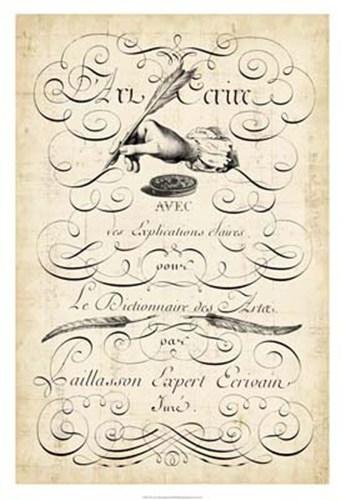 L'Art d'Ecrire
AVEC
des Explications claires.
pour
Le Dictionnaire des Arts.
par
Paillasson Expert Ecrivain
Juré.